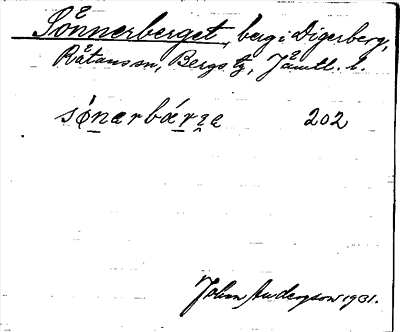 Sönnerberget, berg i Digerberg,
Råtans sn, Bergs tg, Jämtl. l.
sǿnarbárge 202
John Anderson 1931.